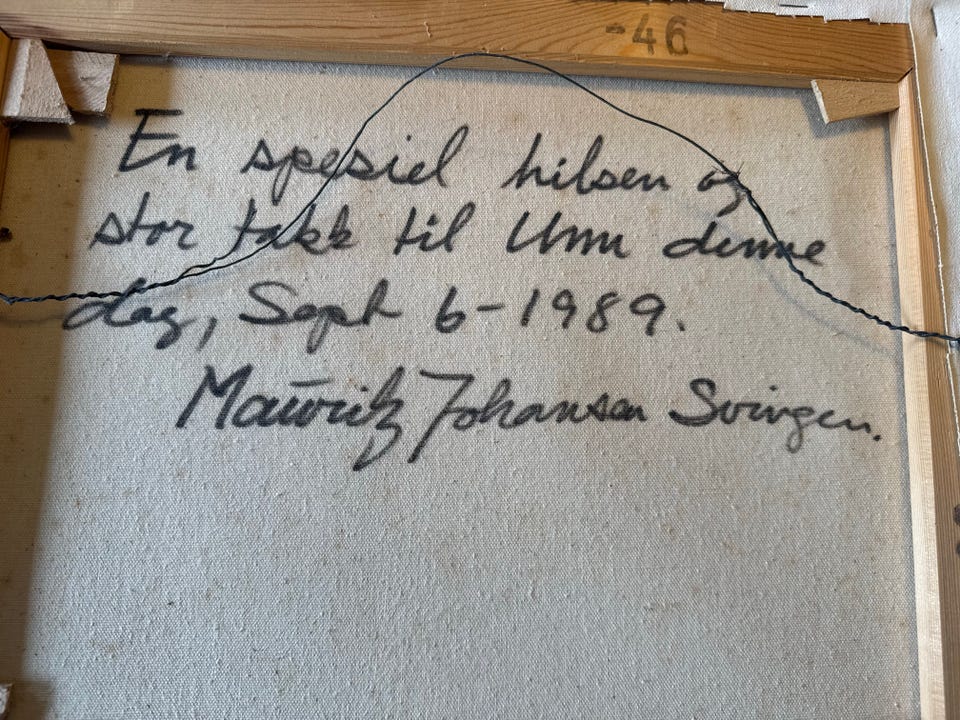 -46
En spesiel hilsen og
stor takk til Unn denne
dag, Sept 6-1989.
Mauritz Johansen Svingen.